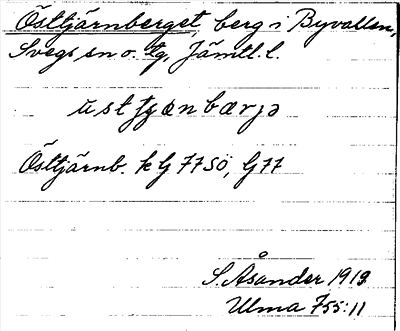 Östtjärnberget, berg i Byvallen,
Svegs sn o. tg, Jämtl. l.
Östtjärnb. k G 77 SÖ, G 77
S. Åsander 1919
Ulma 755:11